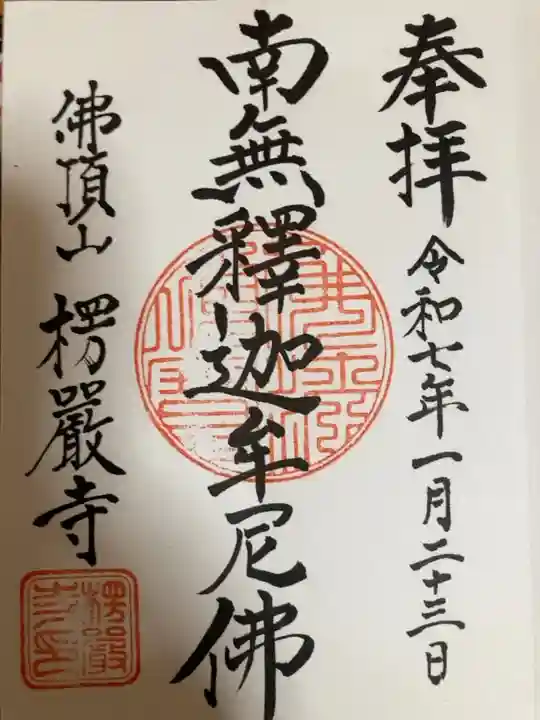 奉拝
令和七年一月二十三日
南無釋迦牟尼佛
佛頂山 楞嚴寺